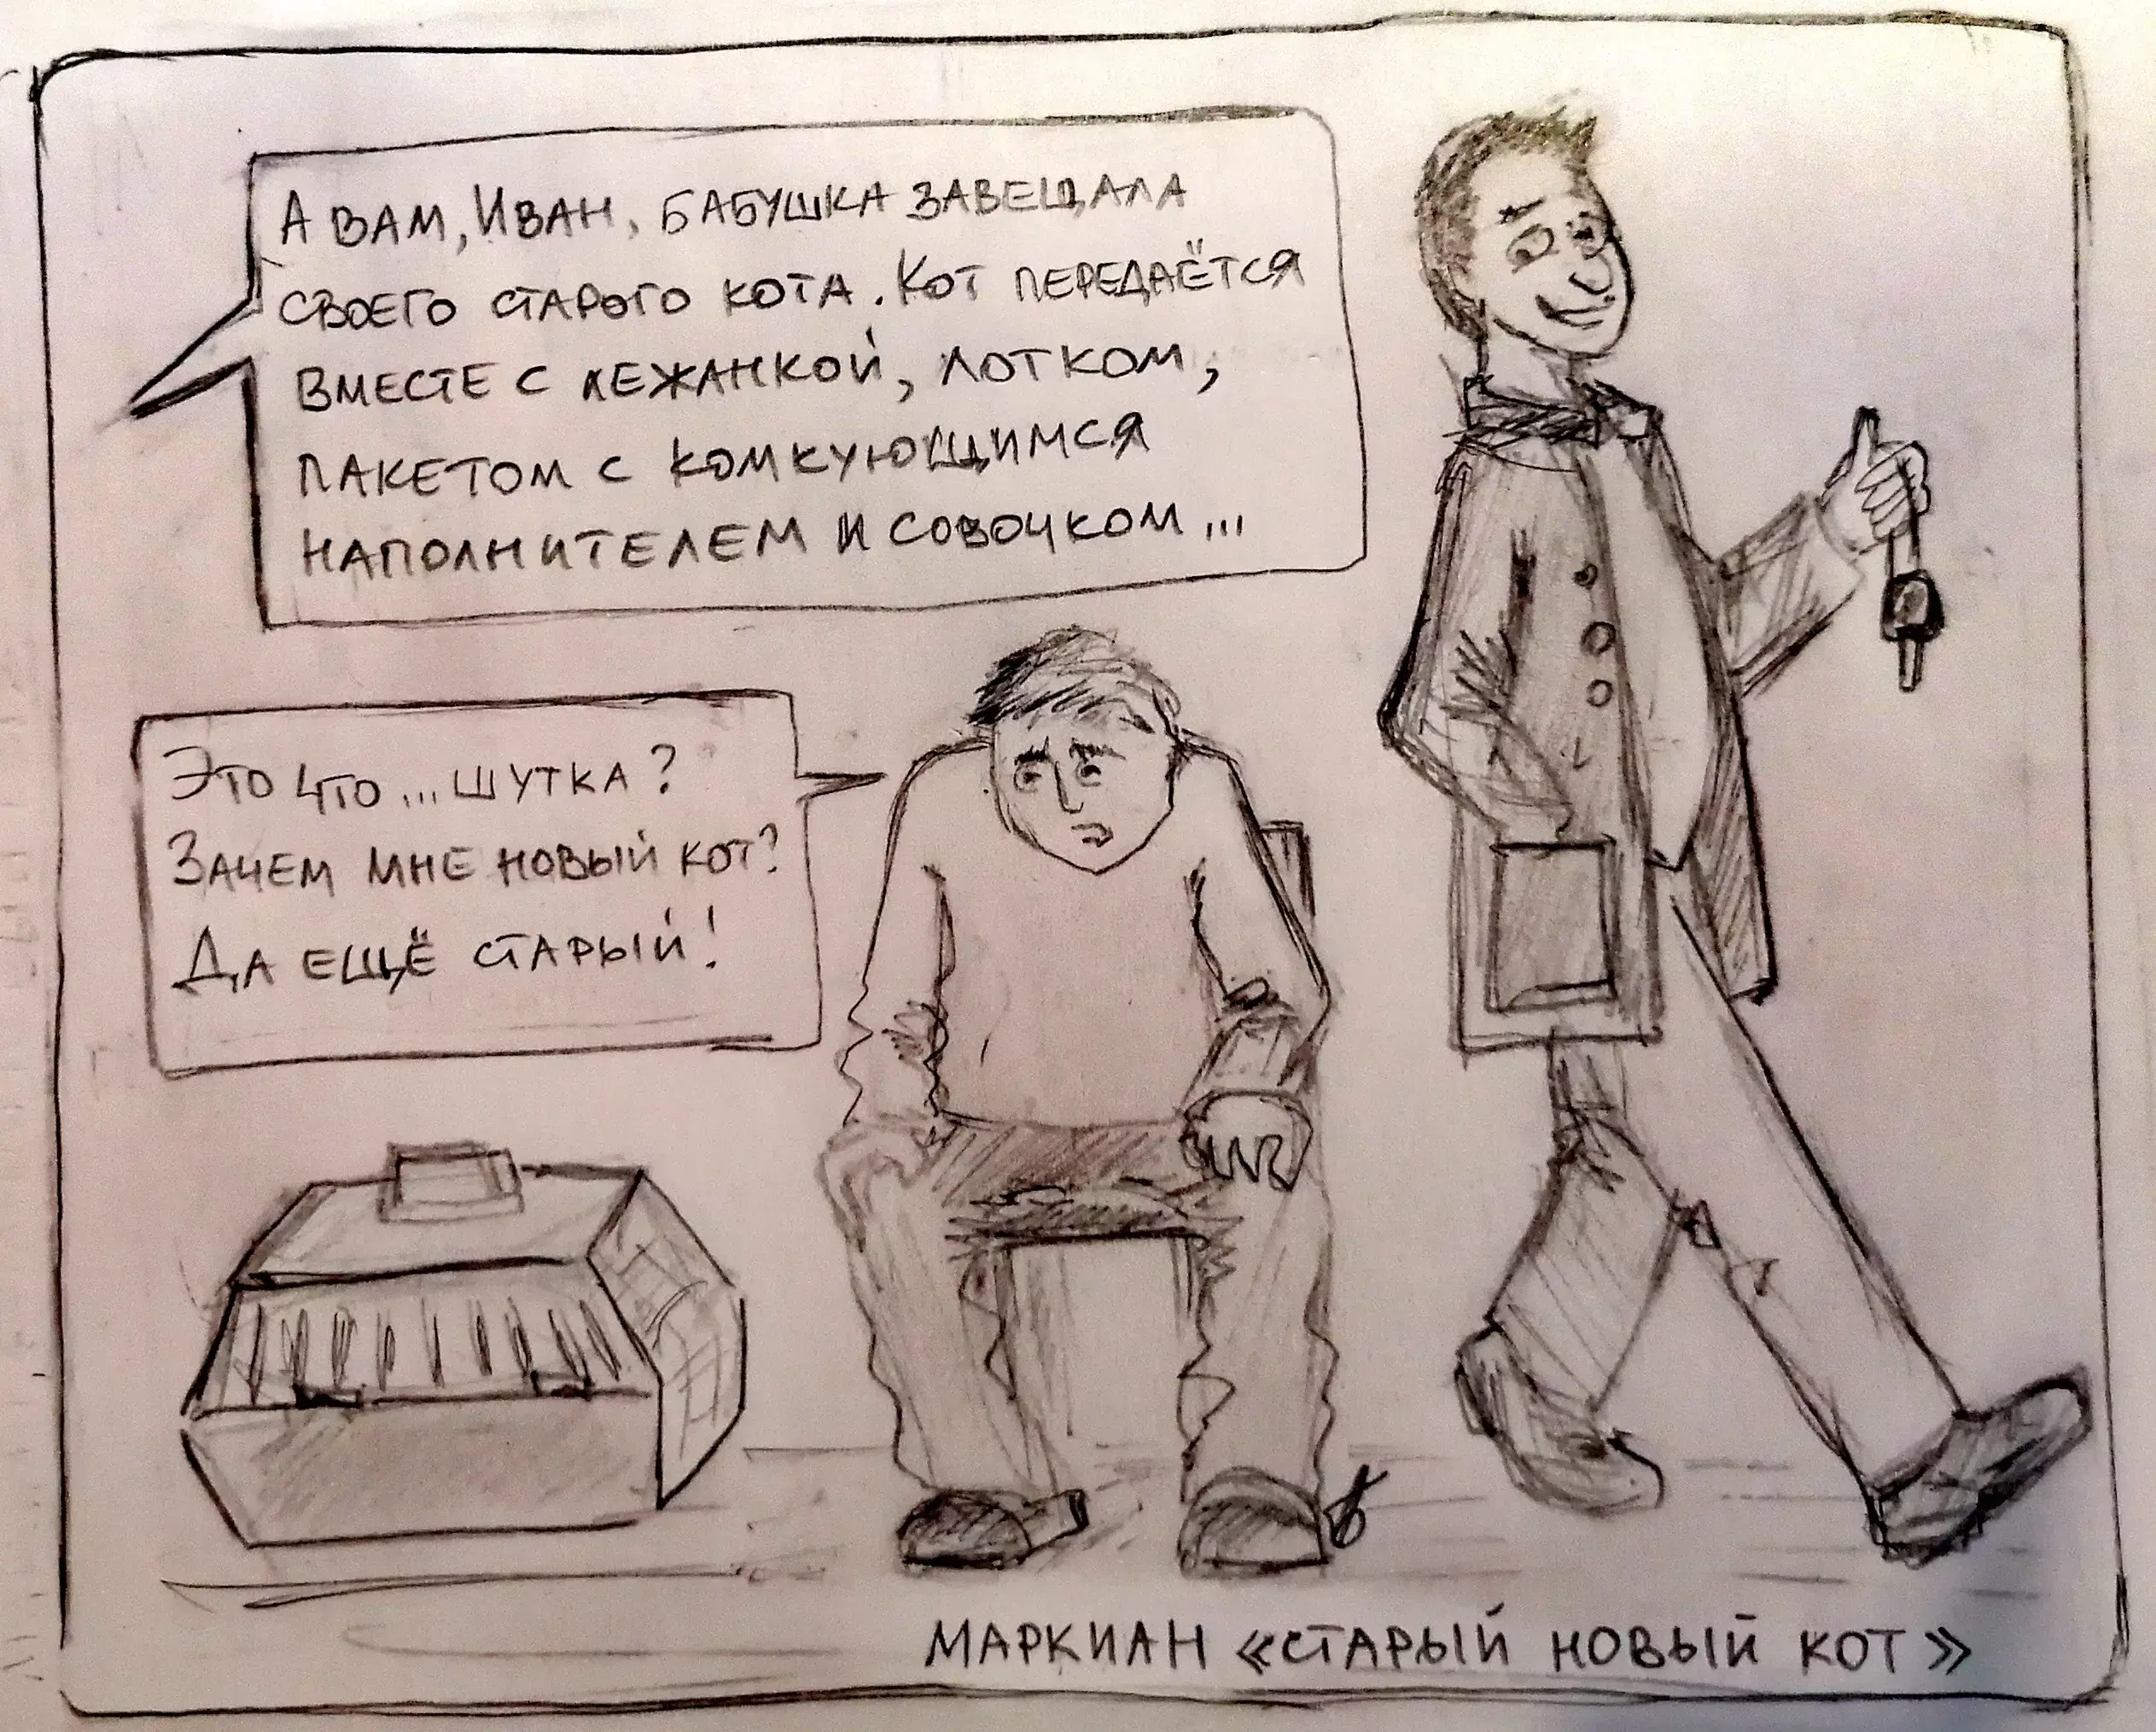 А ВАМ, ИВАН, БАБУШКА ЗАВЕЩАЛА
СВОЕГО СТАРОГО КОТА. КОТ ПЕРЕДАЁТСЯ
ВМЕСТЕ С ЛЕЖАНКОЙ, ЛОТКОМ,
ПАКЕТОМ С КОМКУЮЩИМСЯ
НАПОЛНИТЕЛЕМ И СОВОЧКОМ...
ЭТО ЧТО... ШУТКА?
ЗАЧЕМ МНЕ НОВЫЙ КОТ?
ДА ЕЩЁ СТАРЫЙ!
МАРКИАН «СТАРЫЙ НОВЫЙ КОТ»